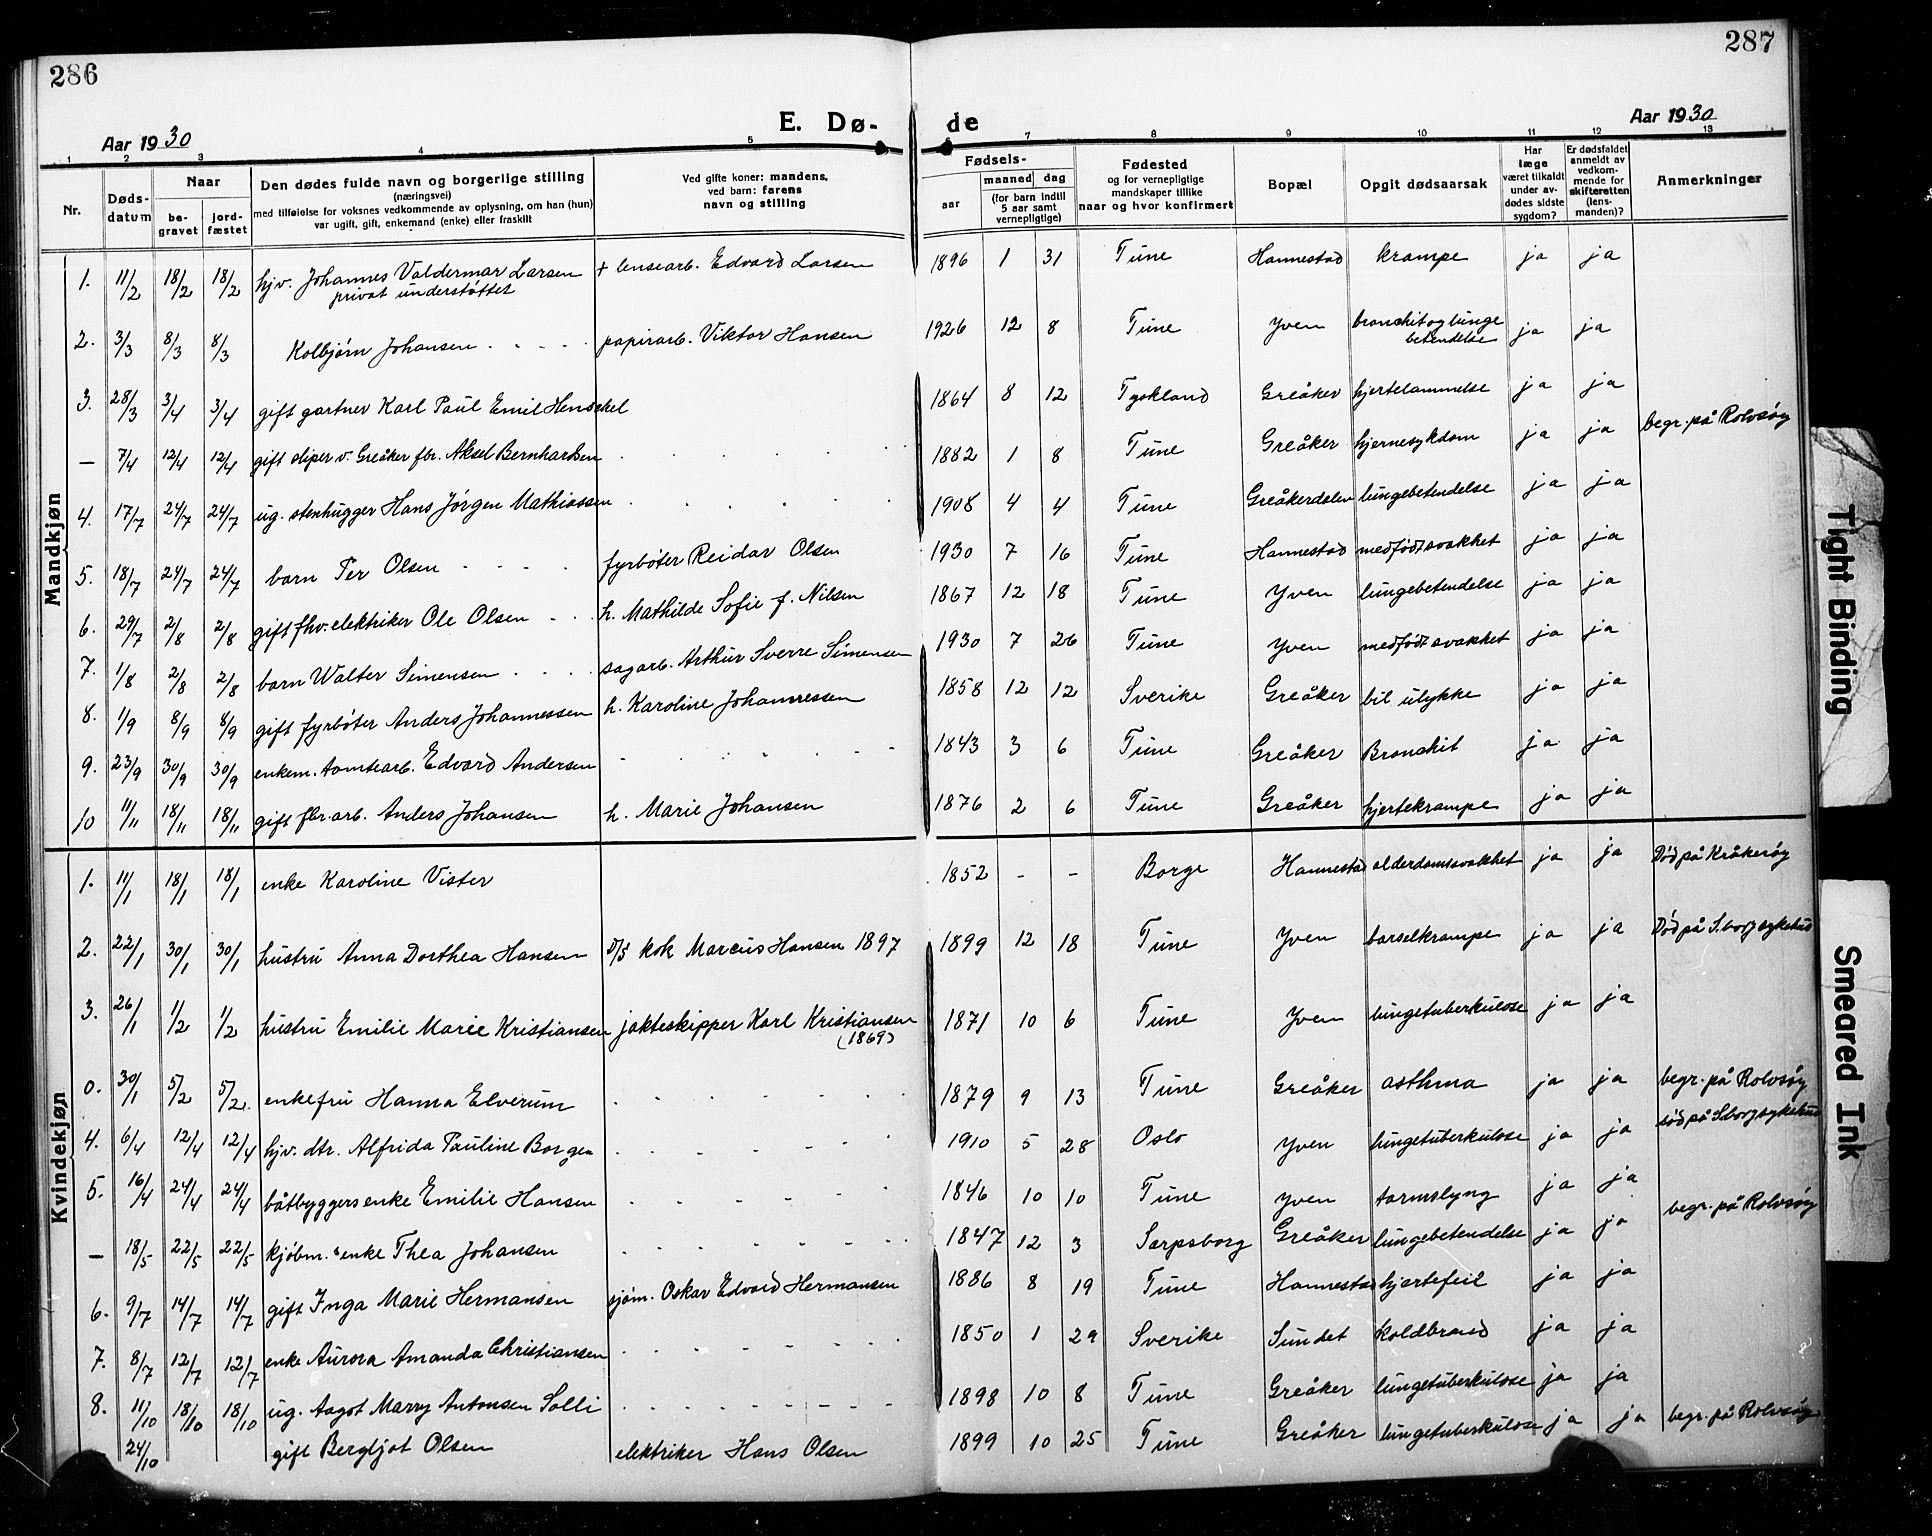 286
287
E. Dø-
de
Aar 1930
Aar 1930
1 2 3 4 5 6 7 8 9 10 11 12 13
Nr.
Døds-datum
Naar
be-gravet
jord-fæstet
Den dødes fulde navn og borgerlige stilling
(næringsvei)
med tilføielse for voksnes vedkommende av oplysning, om han (hun)
var ugift, gift, enkemand (enke) eller fraskilt
Ved gifte koner: mandens,
ved barn: farens
navn og stilling
Fødsels-
aar
maaned
dag
(for barn indtil
5 aar samt
vernepligtige)
Fødested
og for vernepligtige
mandskaper tillike
naar og hvor konfirmert
Bopæl
Opgit dødsaarsak
Har
læge
været tilkaldt
under av-
dødes sidste
sygdom?
Er dødsfaldet
anmeldt av
vedkom-
mende for
skifteretten
(lens-
manden)?
Anmerkninger
Mandkjøn
1. 11/2 18/2 18/2 hjv. Johannes Valdermar Larsen + lensearb. Edvard Larsen 1896 1 31 Tune Hannestad krampe ja ja
privat understøttet
2. 3/3 8/3 8/3 Kolbjørn Johansen papirarb. Viktor Hansen 1926 12 8 Tune Yven bronchit og lunge ja ja
betendelse
3. 28/3 3/4 3/4 gift gartner Karl Paul Emil Henschel 1864 8 12 Tyskland Greåker hjertelammelse ja ja
— 7/4 12/4 12/4 gift sliper v. Greåker fbr. Aksel Bernhardsen 1882 1 8 Tune Greåker hjernesykdom ja ja begr. på Rolvsøy
4. 17/7 24/7 24/7 ug. stenhugger Hans Jørgen Mathiassen 1908 4 4 Tune Greåkerdalen lungebetendelse ja ja
5. 18/7 24/7 24/7 barn Per Olsen fyrbøter Reidar Olsen 1930 7 16 Tune Hannestad medfødt svakhet ja ja
6. 29/7 2/8 2/8 gift fhv. elektriker Ole Olsen h. Mathilde Sofie f. Nilsen 1867 12 18 Tune Yven lungebetendelse ja ja
7. 1/8 2/8 2/8 barn Walter Simensen sagarb. Arthur Sverre Simensen 1930 7 26 Tune Yven medfødt svakhet ja ja
8. 1/9 8/9 8/9 gift fyrbøter Anders Johannessen h. Karoline Johannessen 1858 12 12 Sverike Greåker bil ulykke ja ja
9. 23/9 30/9 30/9 enkem. tomtearb. Edvard Andersen 1843 3 6 Tune Greåker Bronchit ja ja
10 11/11 18/11 18/11 gift fbr. arb. Anders Johansen h. Marie Johansen 1876 2 6 Tune Greåker hjertekrampe ja ja
Kvindekjøn
1. 11/1 18/1 18/1 enke Karoline Vister 1852 - - Borge Hannestad alderdomsvakhet ja ja Død på Kråkerøy
2. 22/1 30/1 30/1 hustru Anna Dorthea Hansen D/S kok Marcus Hansen 1897 1899 12 18 Tune Yven barselkrampe ja ja Død på S.borg sykehus
3. 26/1 1/2 1/2 hustru Emilie Marie Kristiansen jakteskipper Karl Kristiansen 1871 10 6 Tune Yven lungetuberkulose ja ja
(1869)
0. 30/1 5/2 5/2 enkefru Hanna Elverum 1879 9 13 Tune Greåker asthma ja ja begr. på Rolvsøy
4. 6/4 12/4 12/4 hjv. dtr. Alfrida Pauline Borgen 1910 5 28 Oslo Yven lungetuberkulose ja ja død på S.borg sykehus
5. 16/4 24/4 24/4 båtbyggersenke Emilie Hansen 1846 10 10 Tune Yven tarmslyng ja ja
— 18/5 22/5 22/5 kjøbm.s enke Thea Johansen 1847 12 3 Sarpsborg Greåker lungebetendelse ja ja begr. på Rolvsøy
6. 9/7 14/7 14/7 gift Inga Marie Hermansen sjøm. Oskar Edvard Hermansen 1886 8 19 Tune Hannestad hjertefeil ja ja
7. 8/7 12/7 12/7 enke Aurora Amanda Christiansen 1850 1 29 Sverike Sundet koldbrand ja ja
8. 11/10 18/10 18/10 ug. Aagot Marry Antonsen Solli 1898 10 8 Tune Greåker lungetuberkulose ja ja
24/10 gift Bergljot Olsen elektriker Hans Olsen 1899 10 25 Tune Greåker lungetuberkulose ja ja begr. på Rolvsøy
Tight Binding
Smeared Ink